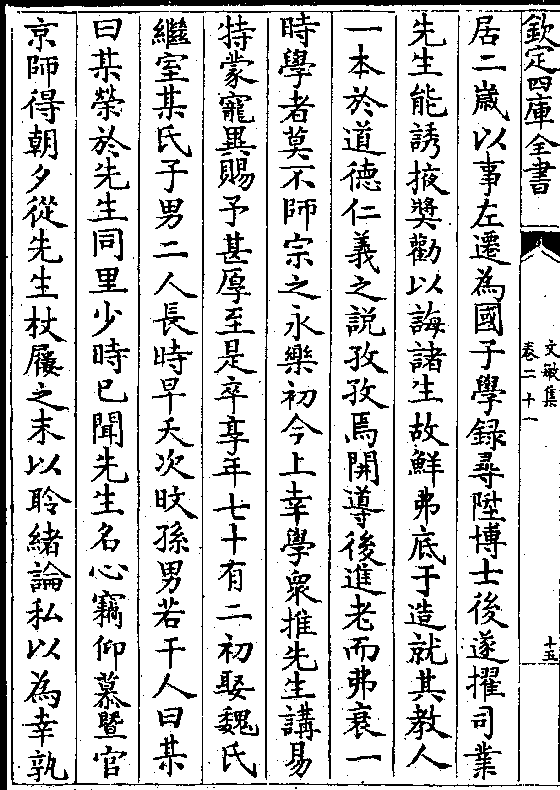 欽定四庫全書
文敏集
卷二十一
十五
居二嵗以事左遷為國子學録尋陞博士後遂擢司業
先生能誘掖奨勸以誨諸生故鮮弗底于造就其教人
一本於道德仁義之説孜孜焉開導後進老而弗衰一
時學者莫不師宗之永樂初今上幸學衆推先生講易
特蒙寵異賜予甚厚至是卒享年七十有二初娶魏氏
繼室某氏子男二人長時早夭次旼孫男若干人曰某
曰某榮於先生同里少時已聞先生名心竊仰慕暨官
京師得朝夕從先生杖屨之末以聆緒論私以為幸孰